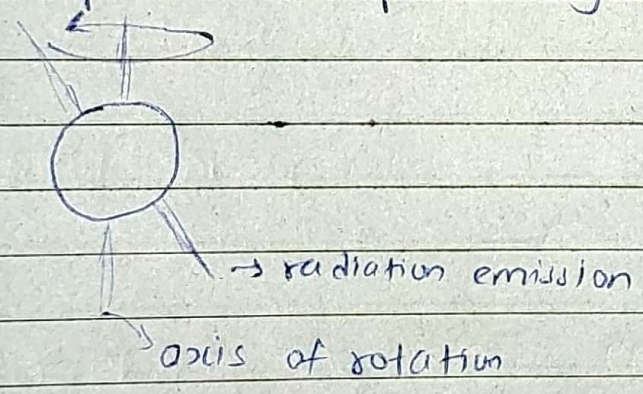 → radiation emission
axis of rotation